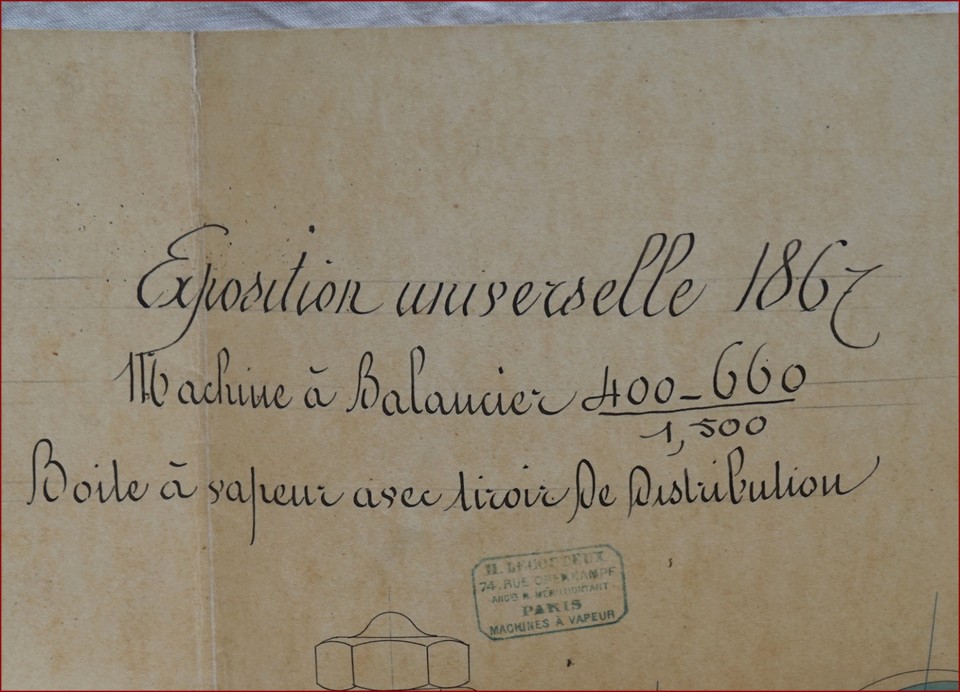 Exposition universelle 1867
Machine à Balancier 400-660
1,500
Boite à vapeur avec tiroir De Distribution
H. LECOUTEUX
74. RUE OBERKAMPF
ANCE R. MÉNILMONTANT
PARIS
MACHINES À VAPEUR